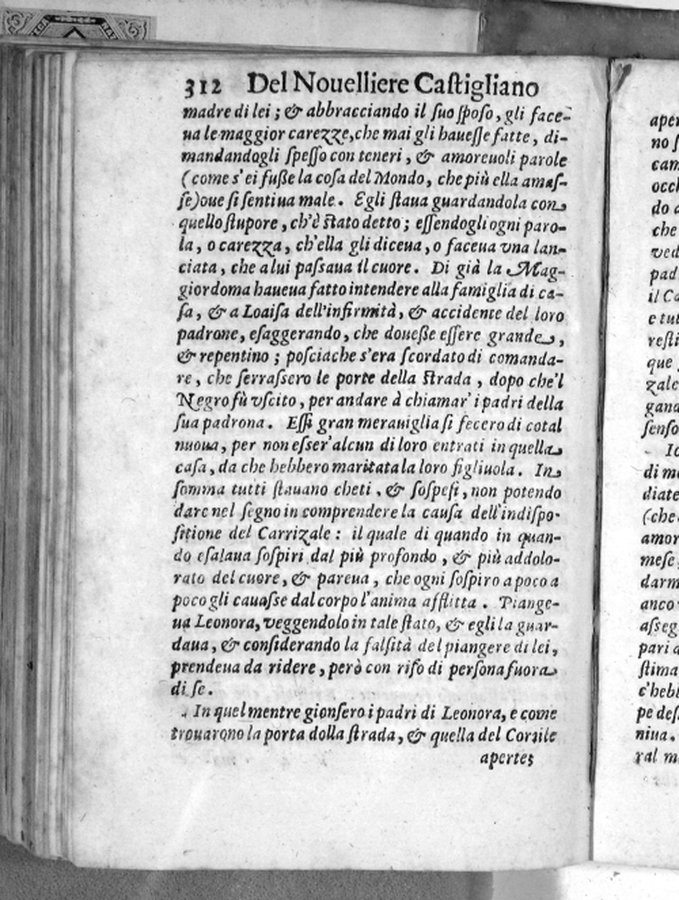 312 Del Nouelliere Castigliano
madre di lei; & abbracciando il suo sposo, gli face-
ua le maggior carezze, che mai gli hauesse fatte, di-
mandandogli spesso con teneri, & amoreuoli parole
(come s'ei fuße la cosa del Mondo, che più ella amas-
se) oue si sentiua male. Egli staua guardandola con
quello stupore, ch'è stato detto; essendogli ogni paro-
la, o carezza, ch'ella gli diceua, o faceua vna lan-
ciata, che a lui passaua il cuore. Di già la Mag-
giordoma haueua fatto intendere alla famiglia di ca-
sa, & a Loaisa dell'infirmità, & accidente del loro
padrone, esaggerando, che doueße essere grande,
& repentino; posciache s'era scordato di comanda-
re, che serrassero le porte della strada, dopo che'l
Negro fù vscito, per andare à chiamar' i padri della
sua padrona. Essi gran merauiglia si fecero di cotal
nuoua, per non esser'alcun di loro entrati in quella
casa, da che hebbero maritata la loro figliuola. In
somma tutti stauano cheti, & sospesi, non potendo
dare nel segno in comprendere la causa dell'indispo-
sitione del Carrizale: il quale di quando in quan-
do esalaua sospiri dal più profondo, & più addolo-
rato del cuore, & pareua, che ogni sospiro a poco a
poco gli cauasse dal corpo l'anima afflitta. Piange-
ua Leonora, veggendolo in tale stato, & egli la guar-
daua, & considerando la falsità del piangere di lei,
prendeua da ridere, però con riso di persona fuora
di se.
In quel mentre gionsero i padri di Leonora, e come
trouarono la porta dolla strada, & quella del Cortile
aperte;
aper
no s
cam
occh
do a
che
ved
pad
il Ca
e tut
resti
que
zale
gana
senso
Io
di mo
diate
(che
amor
mese
darm
anco
asseg
pari a
stima
c'hebb
pe des
niua.
ral m